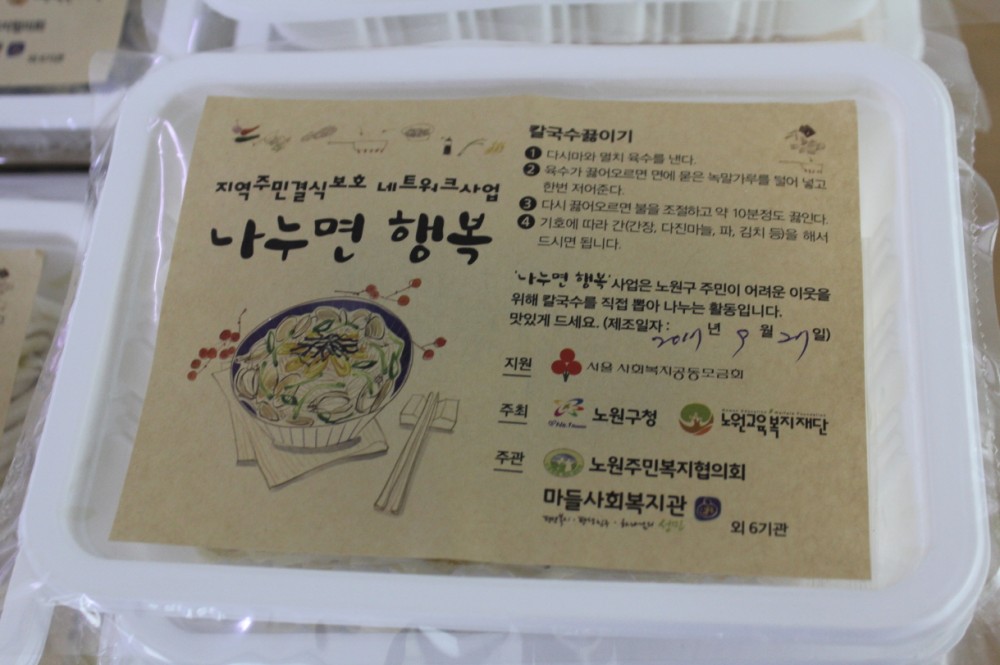 지역주민결식보호 네트워크사업
나누면 행복
칼국수끓이기
❶ 다시마와 멸치 육수를 낸다.
❷ 육수가 끓어오르면 면에 묻은 녹말가루를 털어 넣고
한번 저어준다.
❸ 다시 끓어오르면 불을 조절하고 약 10분정도 끓인다.
❹ 기호에 따라 간(간장, 다진마늘, 파, 김치 등)을 해서
드시면 됩니다.
'나누면 행복'사업은 노원구 주민이 어려운 이웃을
위해 칼국수를 직접 뽑아 나누는 활동입니다.
맛있게 드세요. (제조일자 : 2011년 9월 21일)
지원 서울 사회복지공동모금회
주최 노원구청 노원교육복지재단
주관 노원주민복지협의회
마들사회복지관
외 6기관
외 6기관